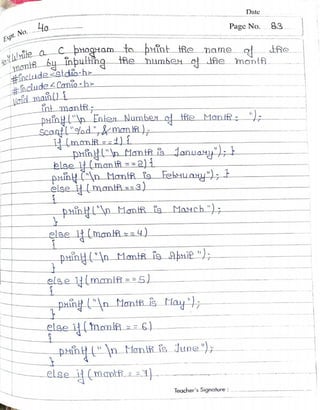 Date
Expt. No. 40
Page No. 83
Write a C program to print the name of the
month by inputting the number of the month
#include<stdio.h>
#include<conio.h>
void main() {
int month;
printf("\n Enter Number of the Month: ");
scanf("%d",&month);
if (month==1) {
printf("\n Month is January"); }
else if (month==2) {
printf("\n Month is February"); }
else if (month==3)
{
printf("\n Month is March");
}
else if (month==4)
{
printf("\n Month is April");
}
else if (month==5)
{
printf("\n Month is May");
}
else if (month==6)
{
printf("\n Month is June");
}
else if (month==7)
Teacher's Signature :